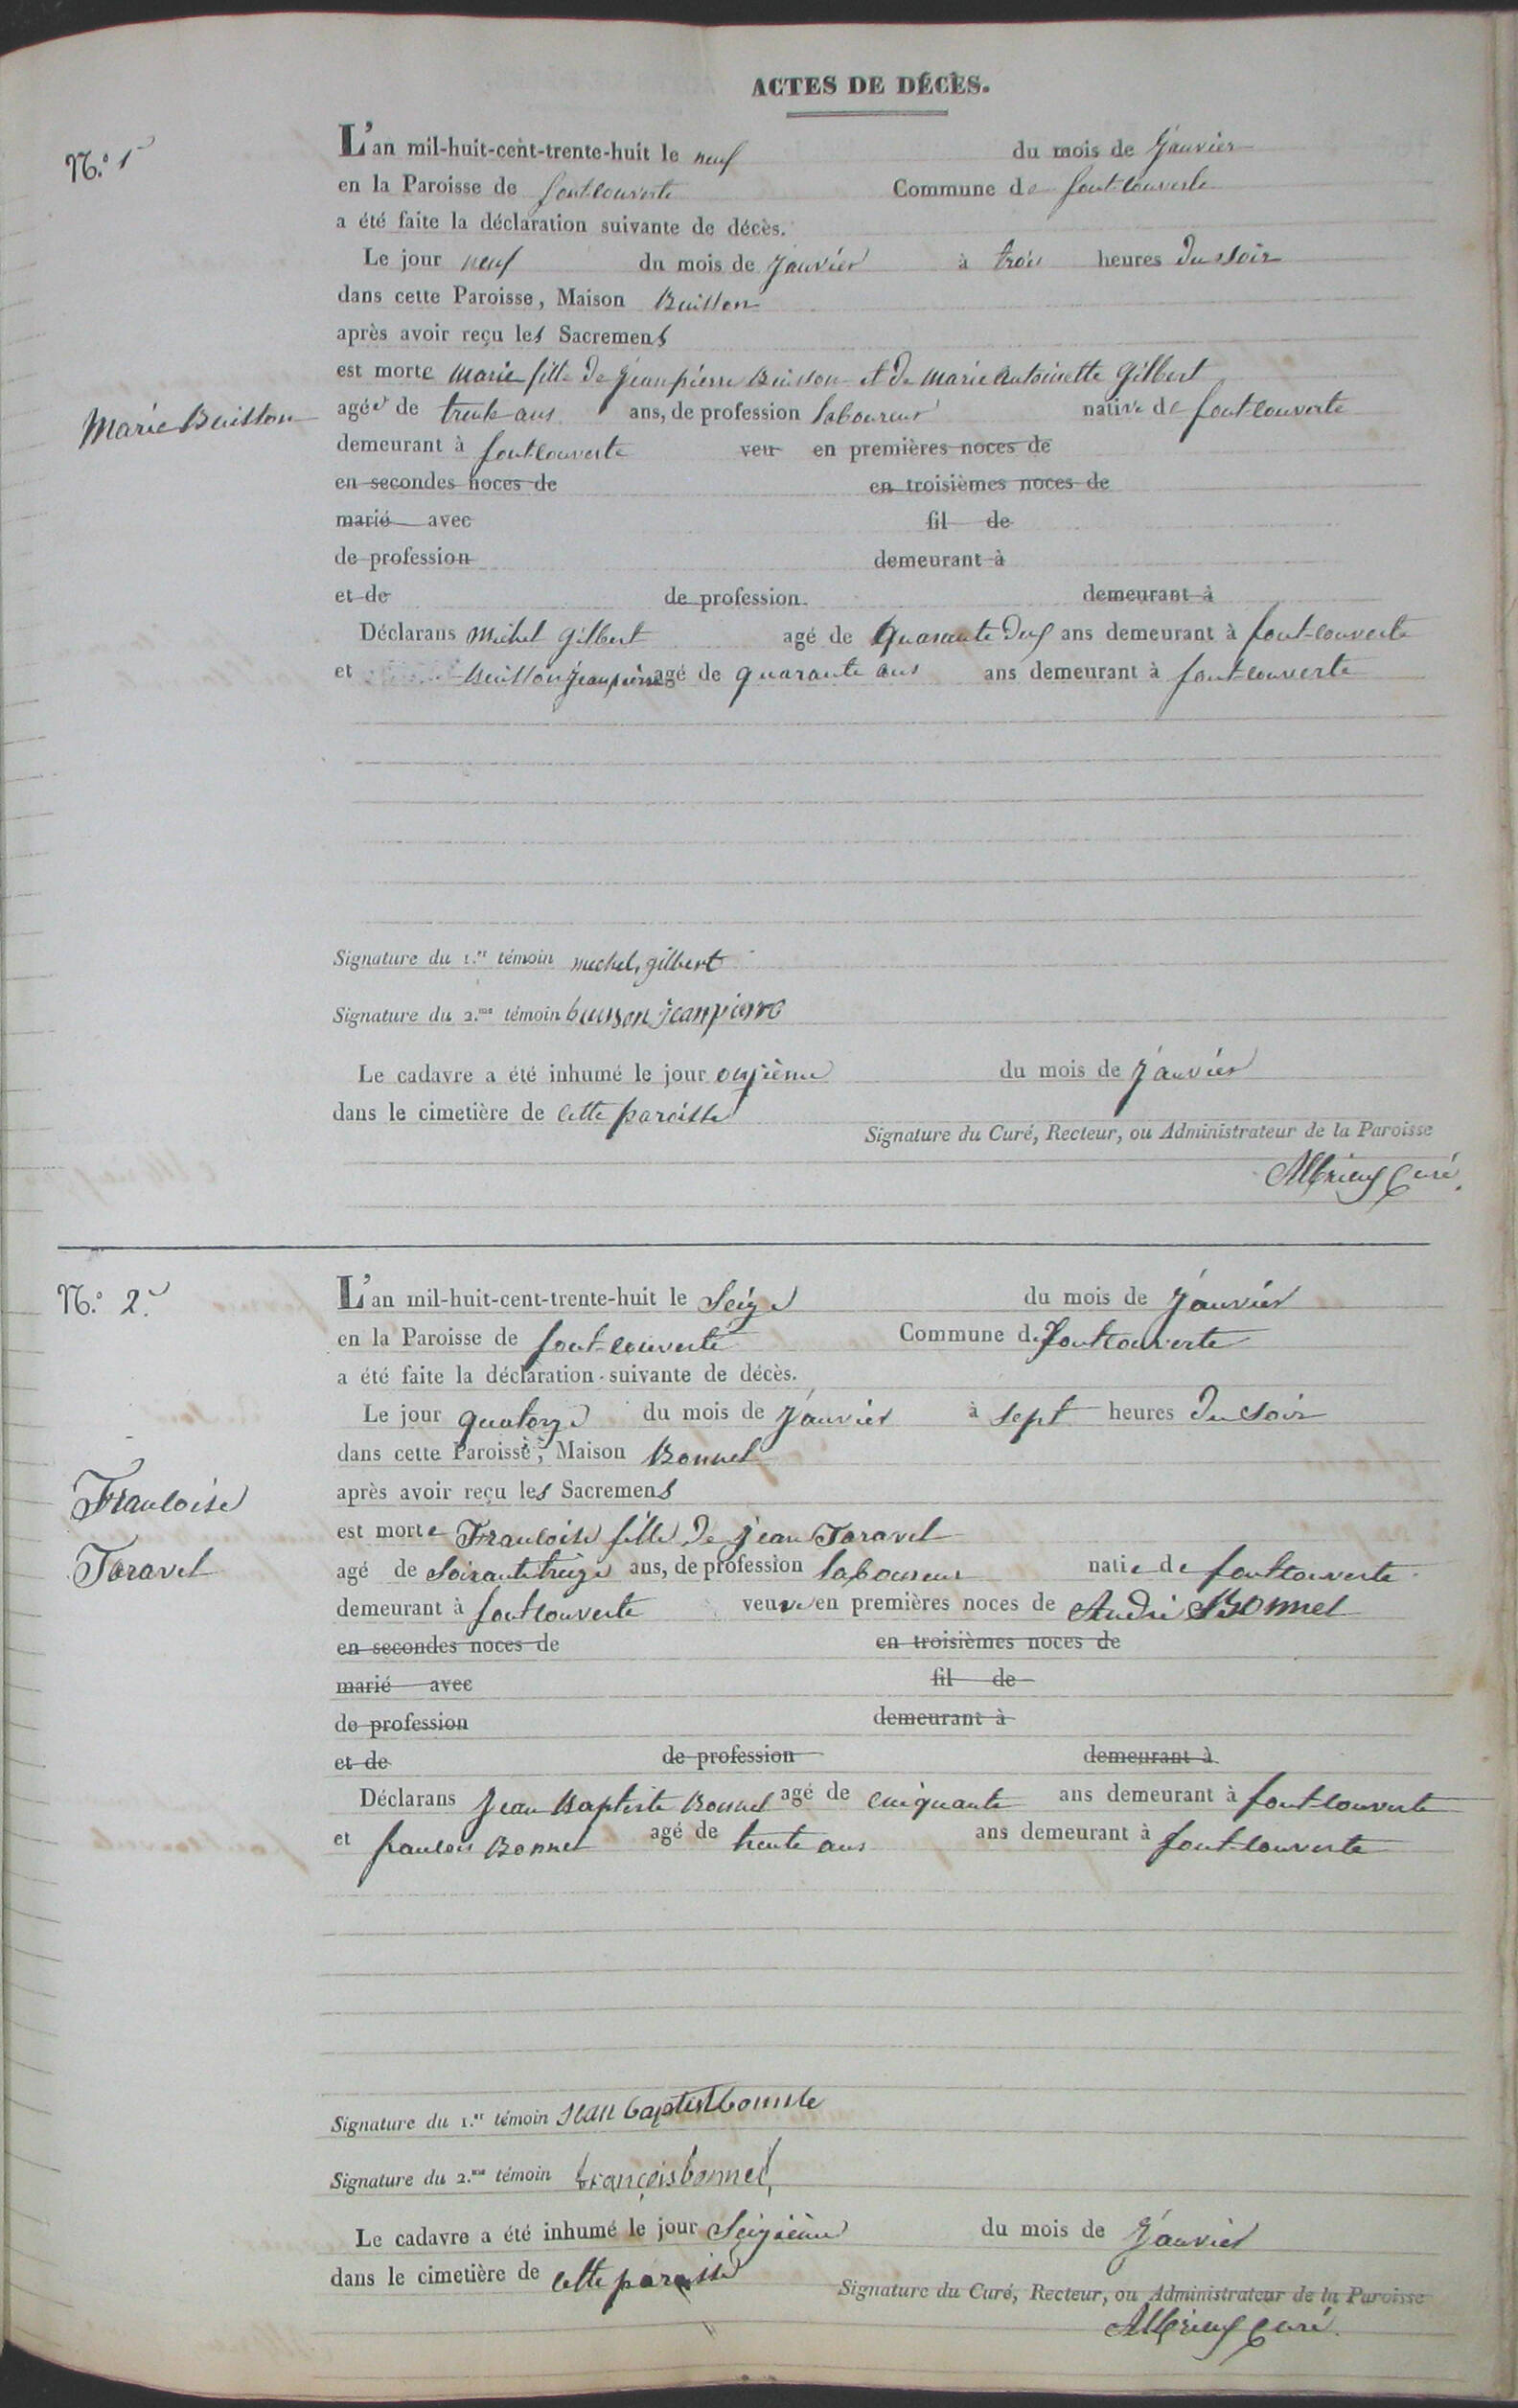 ACTES DE DÉCÈS.
N.º 1
L'an mil-huit-cent-trente-huit le neuf du mois de Janvier
en la Paroisse de fontcouverte Commune de fontcouverte
a été faite la déclaration suivante de décès.
Le jour neuf du mois de Janvier à trois heures du soir
dans cette Paroisse, Maison Buisson
après avoir reçu les Sacremens
est morte Marie fille de Jean pierre Buisson et de Marie Antoinette Gilbert
Marie Buisson
agée de trente ans ans, de profession laboureur native de fontcouverte
demeurant à fontcouverte veu en premières noces de
en secondes noces de en troisièmes noces de
marié avec fil de
de profession demeurant à
et de de profession demeurant à
Déclarans Michel Gilbert agé de quarante deux ans demeurant à font-couverte
et Buisson Jean pierre agé de quarante ans ans demeurant à font-couverte
Signature du 1.er témoin michel gilbert
Signature du 2.me témoin buisson jean pierre
Le cadavre a été inhumé le jour onzième du mois de Janvier
dans le cimetière de cette paroisse
Signature du Curé, Recteur, ou Administrateur de la Paroisse
Curé.
N.º 2.
L'an mil-huit-cent-trente-huit le Seize du mois de Janvier
en la Paroisse de font-couverte Commune de fontcouverte
a été faite la déclaration suivante de décès.
Le jour quatorze du mois de Janvier à sept heures du soir
dans cette Paroisse, Maison Bonnel
après avoir reçu les Sacremens
Francoise
est morte Francoise fille de Jean Taravel
Taravel
agé de Soixante treize ans, de profession laboureur natie de fontcouverte
demeurant à fontcouverte veuve en premières noces de André Bonnel
en secondes noces de en troisièmes noces de
marié avec fil de
de profession demeurant à
et de de profession demeurant à
Déclarans Jean Baptiste Bonnel agé de cinquante ans demeurant à font-couverte
et francois Bonnel agé de trente ans ans demeurant à font-couverte
Signature du 1.er témoin Jean baptist bonnle
Signature du 2.me témoin françois bonnel
Le cadavre a été inhumé le jour Seizième du mois de Janvier
dans le cimetière de cette paroisse
Signature du Curé, Recteur, ou Administrateur de la Paroisse
curé.